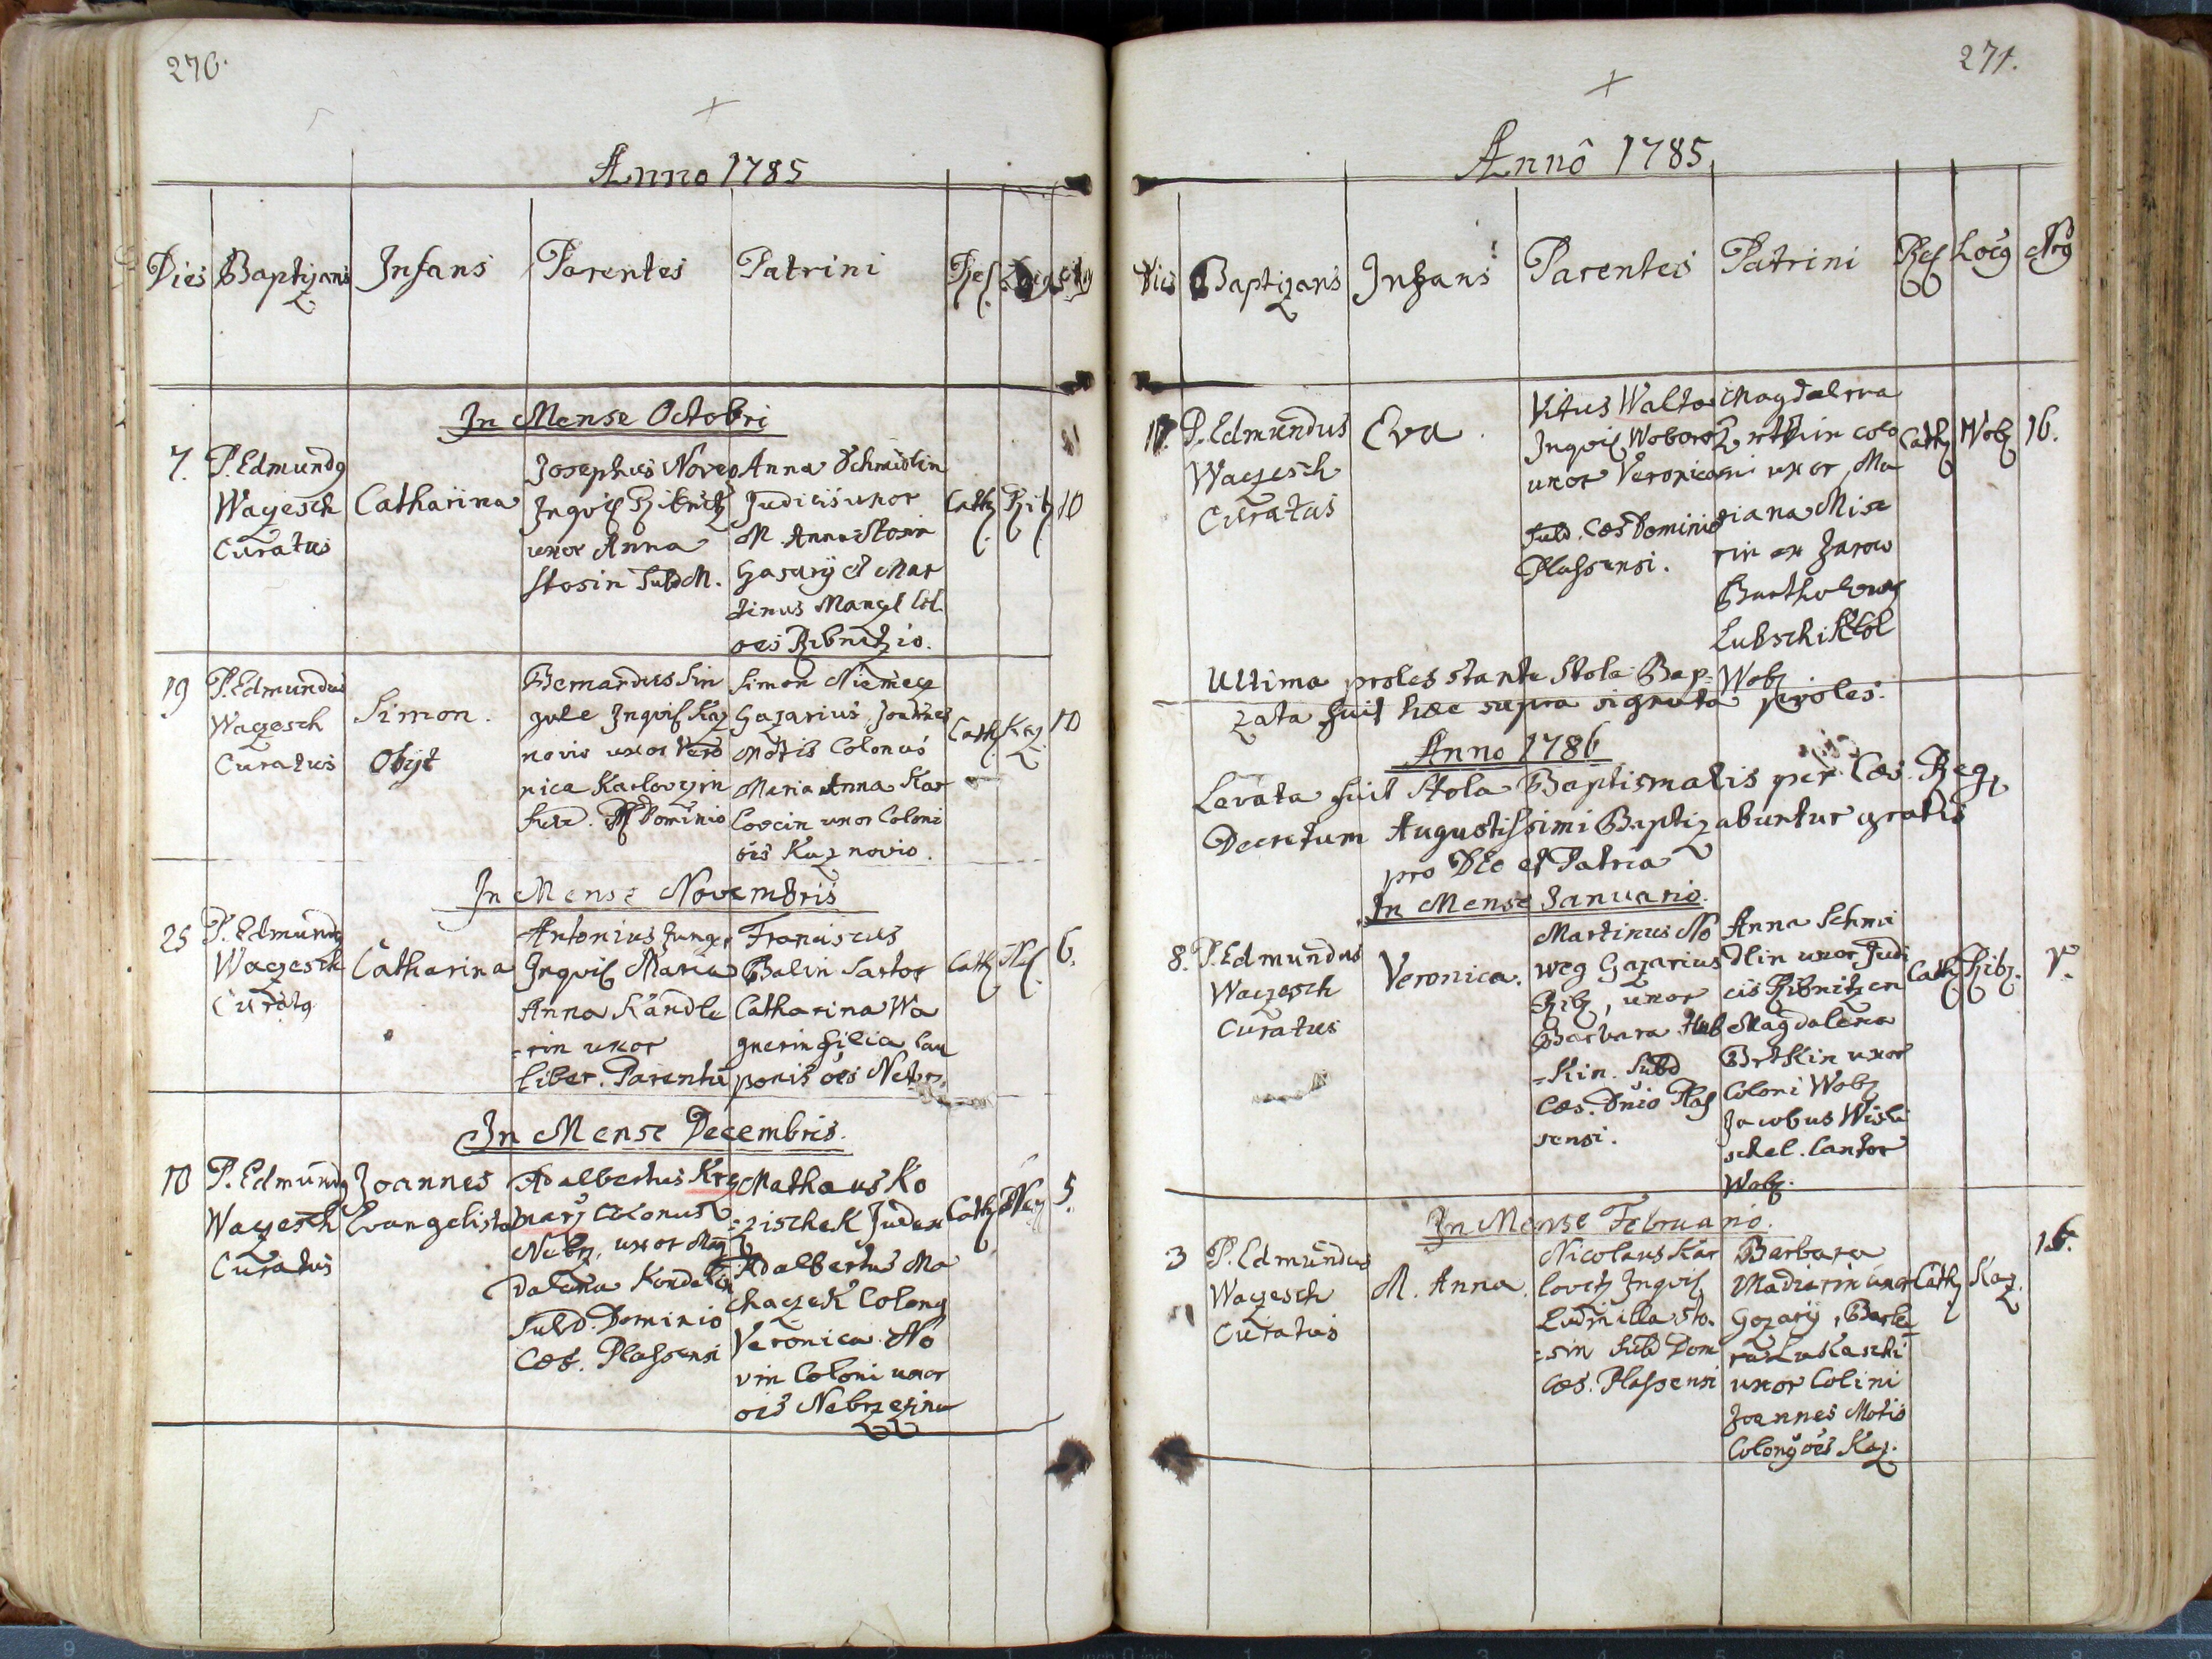 270.
Anno 1785
Dies Baptizans Infans Parentes Patrini Rel.
In Mense Octobri
7. P. Edmundg Wayesch Curatus
Catharina
Josephus Noveg
Inqvil Ribnitz
uxor Anna
Stosin Subd M.
Anna Schmidlin
Judicis uxor
M Anna Stosin
Gasarij & Mar
tinus Mangl Col.
oes Ribnitzio.
Cath Rib 10
19 P. Edmundus Wayesch Curatus
Simon.
Obijt
Bernardus Sin
gule Inqvil Kaz
novio uxor Vero
nica Karlovzin
Subd. Dominio
Simon Niemecz
Gazarius, Joannes
Motis Colonus
Maria Anna Kar
lovcin uxor Coloni
ois Kaznovio.
Cath Kaz 10
In Mense Novembris
25 P. Edmundg Wayesch Curatg
Catharina
Antonius Jung
Inqvil Maria
Anna Kandle
-rin uxor
liber. Parentu
Franciscus
Balin Sartor
Catharina Wa
gnerin filia Cau
ponis oes Nebr.
Cath 6.
In Mense Decembris.
10 P. Edmundg Wayesch Curatus
Joannes
Evangelista
Adalbertus Krz
marz Colonus
Nebrz, uxor Mag
dalena Kondelin
Subd. Dominio
Cæs. Plassensi
Mathaus Ko
-zischek Judex
Adalbertus Ma
chaczek Colong
Veronica No
vin Coloni uxor
ois Nebrzezinu
Cath Neb 5.
271.
Annô 1785
Dies Baptizans Infans Parentes Patrini Rel Locg Nrg
17. P. Edmundus
Wayesch
Curatus
Eva.
Vitus Walto
Inqvil Wobora
uxor Veronica
Subd. Cæs Dominio
Plassensi.
Magdalena
Brtkin colo
ni uxor, Ma
riana Mise
rin ex Zarow
Bartholomeg
Lubschik Col
Wobz
Cath Wobz 16.
Ultima proles stante Stola Bap-
zata fuit hæc supra signata proles.
Anno 1786
Levata fuit Stola Baptismatis per Cæs. Reg.
Decretum Augustissimi Baptizabuntur gratis
pro DEo et Patria
In Mense Januario.
8. P. Edmundus
Wayesch
Curatus
Veronica.
Martinus No
weg Gazarius
Ribz, uxor
Barbara Hub
-kin. Subd
Cæs. Dnio Plas
sensi.
Anna Schmi
dlin uxor Judi
cis Ribnitzen
Magdalena
Brtkin uxor
Coloni Wobz
Jacobus Wisli
schel. Cantor
Wobz.
Cath Ribz. V.
In Mense Februario.
3 P. Edmundus
Wayesch
Curatus
M. Anna.
Nicolaus Kar
lovetz Inqvil
Ludmilla Sto-
-sin Subd Dom
Cæs. Plassensi
Barbara
Madierin uxor
Gozarij, Barba
ra Lukaschi
uxor Colini
Joannes Motis
Colong oes Kaz.
Cath Kaz.